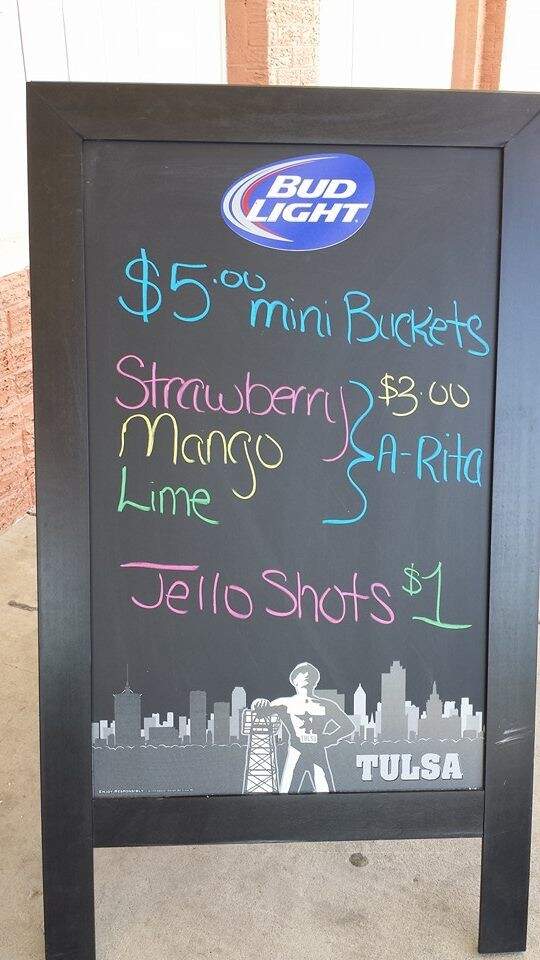 BUD
LIGHT
$5.00 mini Buckets
Strawberry $3.00
Mango A-Rita
Lime
Jello Shots $1
TULSA
TULSA
ENJOY RESPONSIBLY